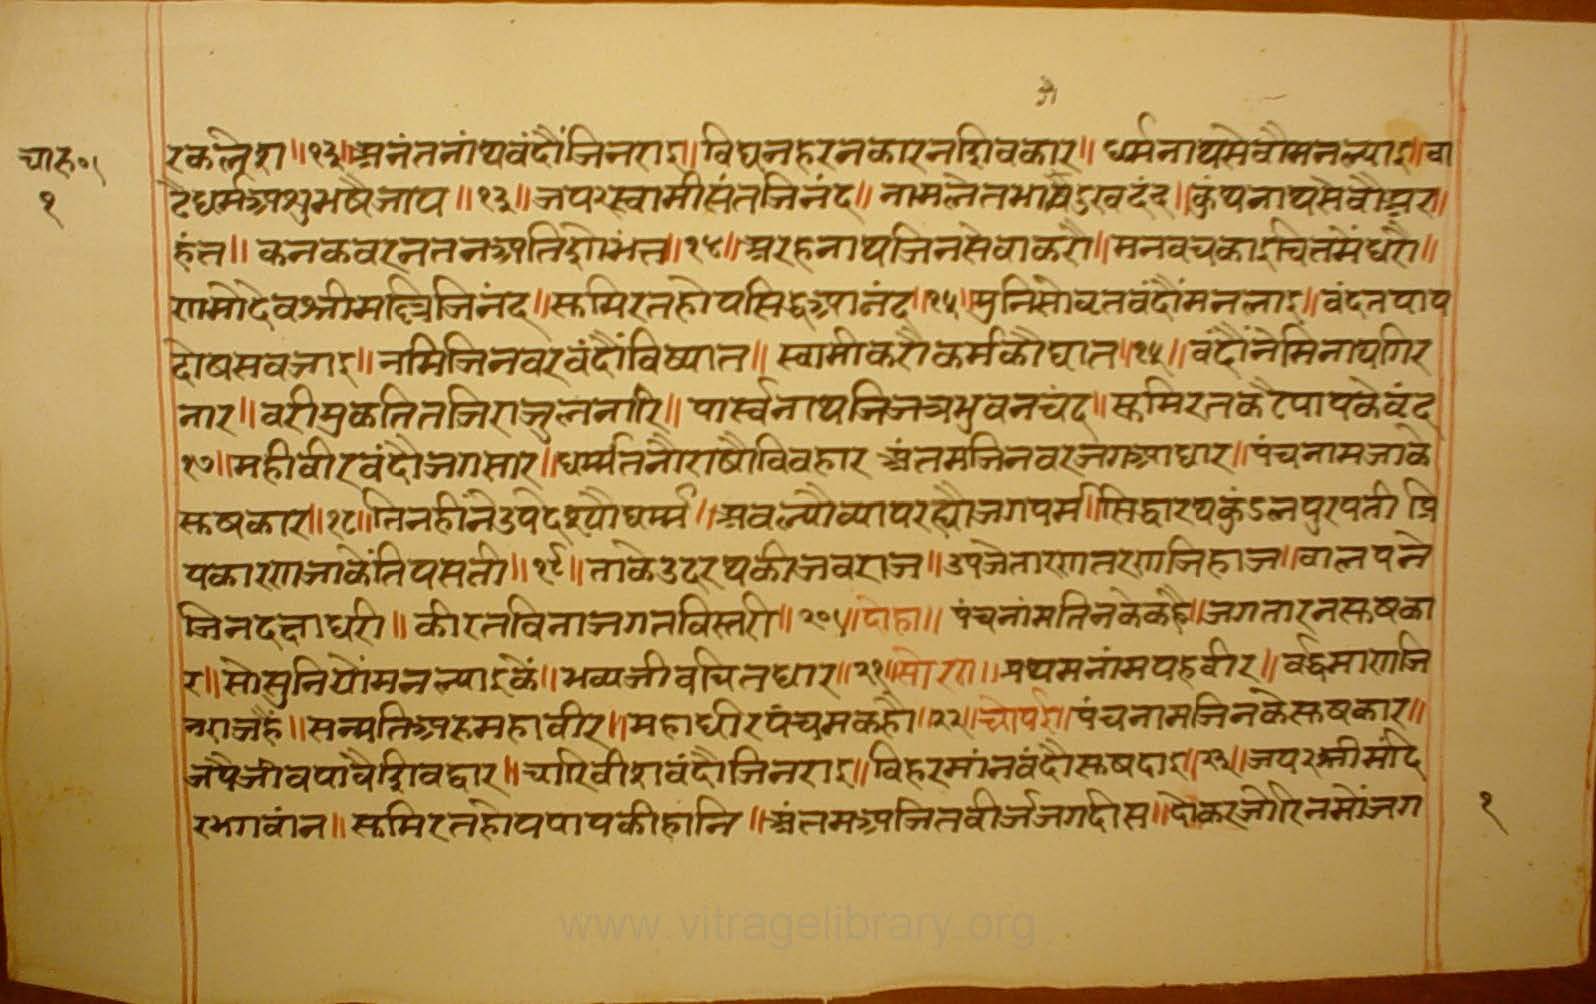 जै
चारु०१
१
रकलेश॥१२॥अनंतनांथवंदौंजिनराइ॥विघनहरनकारनशिवकार॥धर्मनाथसेवौमनल्याइ॥वा
टैधर्मअशुभषैजाप॥१३॥जप२स्वामीसंतजिनंद॥नामलेत
हंत॥कनकवरनतनअतिशोभंत॥१४॥अरहनाथजिनसेवाकरौ॥मनवचकाइचितमेंधरौ॥
णमोदेवश्रीमल्लिजिनंद॥सुमिरतहोयसिद्धआनंद॥१५॥मुनिसोव्रतवंदौंमनलाइ॥वंदतपाप
दोषसवजाइ॥नमिजिनवरवंदौंविष्यात॥स्वामीकरौकर्मकौघात॥१६॥वंदौंनेमिनाथगिर
नार॥वरीमुकतितजिराजुलनारि॥पार्स्वनाथजिजत्रभुवनचंद॥सुमिरतकटैपापकेवंद
१७॥महीवीरवंदौजगसार॥धर्म्मतनौराषौविवहार अंतमजिनवरजगआधार॥पंचनामजाके
सुषकार॥१८॥तिनहींनेउपदेश्यौधर्म्म॥अवल्यौव्यापरह्यौजगपर्म॥सिद्धारथकुंडलपुरपती प्रि
यकारणजाकेंतियसती॥१९॥ताकेउदरथकीजवराज॥उपजेतारणतरणजिहाज॥वालपने
जिनदक्षाधरी॥कीरतविनाजगतविस्तरी॥२०॥दोहा॥पंचनांमतिनकेकहै॥जगतारनसुषका
र॥सोसुनियौंमनल्याइकें॥भव्यजीवचितधार॥२१॥सोरठा॥प्रथमनांमपहवीर॥वर्द्धमाणजि
नराजहैं॥सन्मतिअरुमहावीर॥महाधीरपंच्यमकहौ॥२२॥चोपई॥पंचनामजिनकेसुषकार॥
जपैजीवपावैशिवद्वार॥चारिवीशवंदौजिनराइ॥विहरमांनवंदौसुषदाइ॥२३॥जप२श्रीमंदि
रभगवांन॥सुमिरतहोयपापकीहांनि॥अंतमअजितवीर्जजगदीस॥दोकरजोरिनमोंजग
१
www.vitragelibrary.org